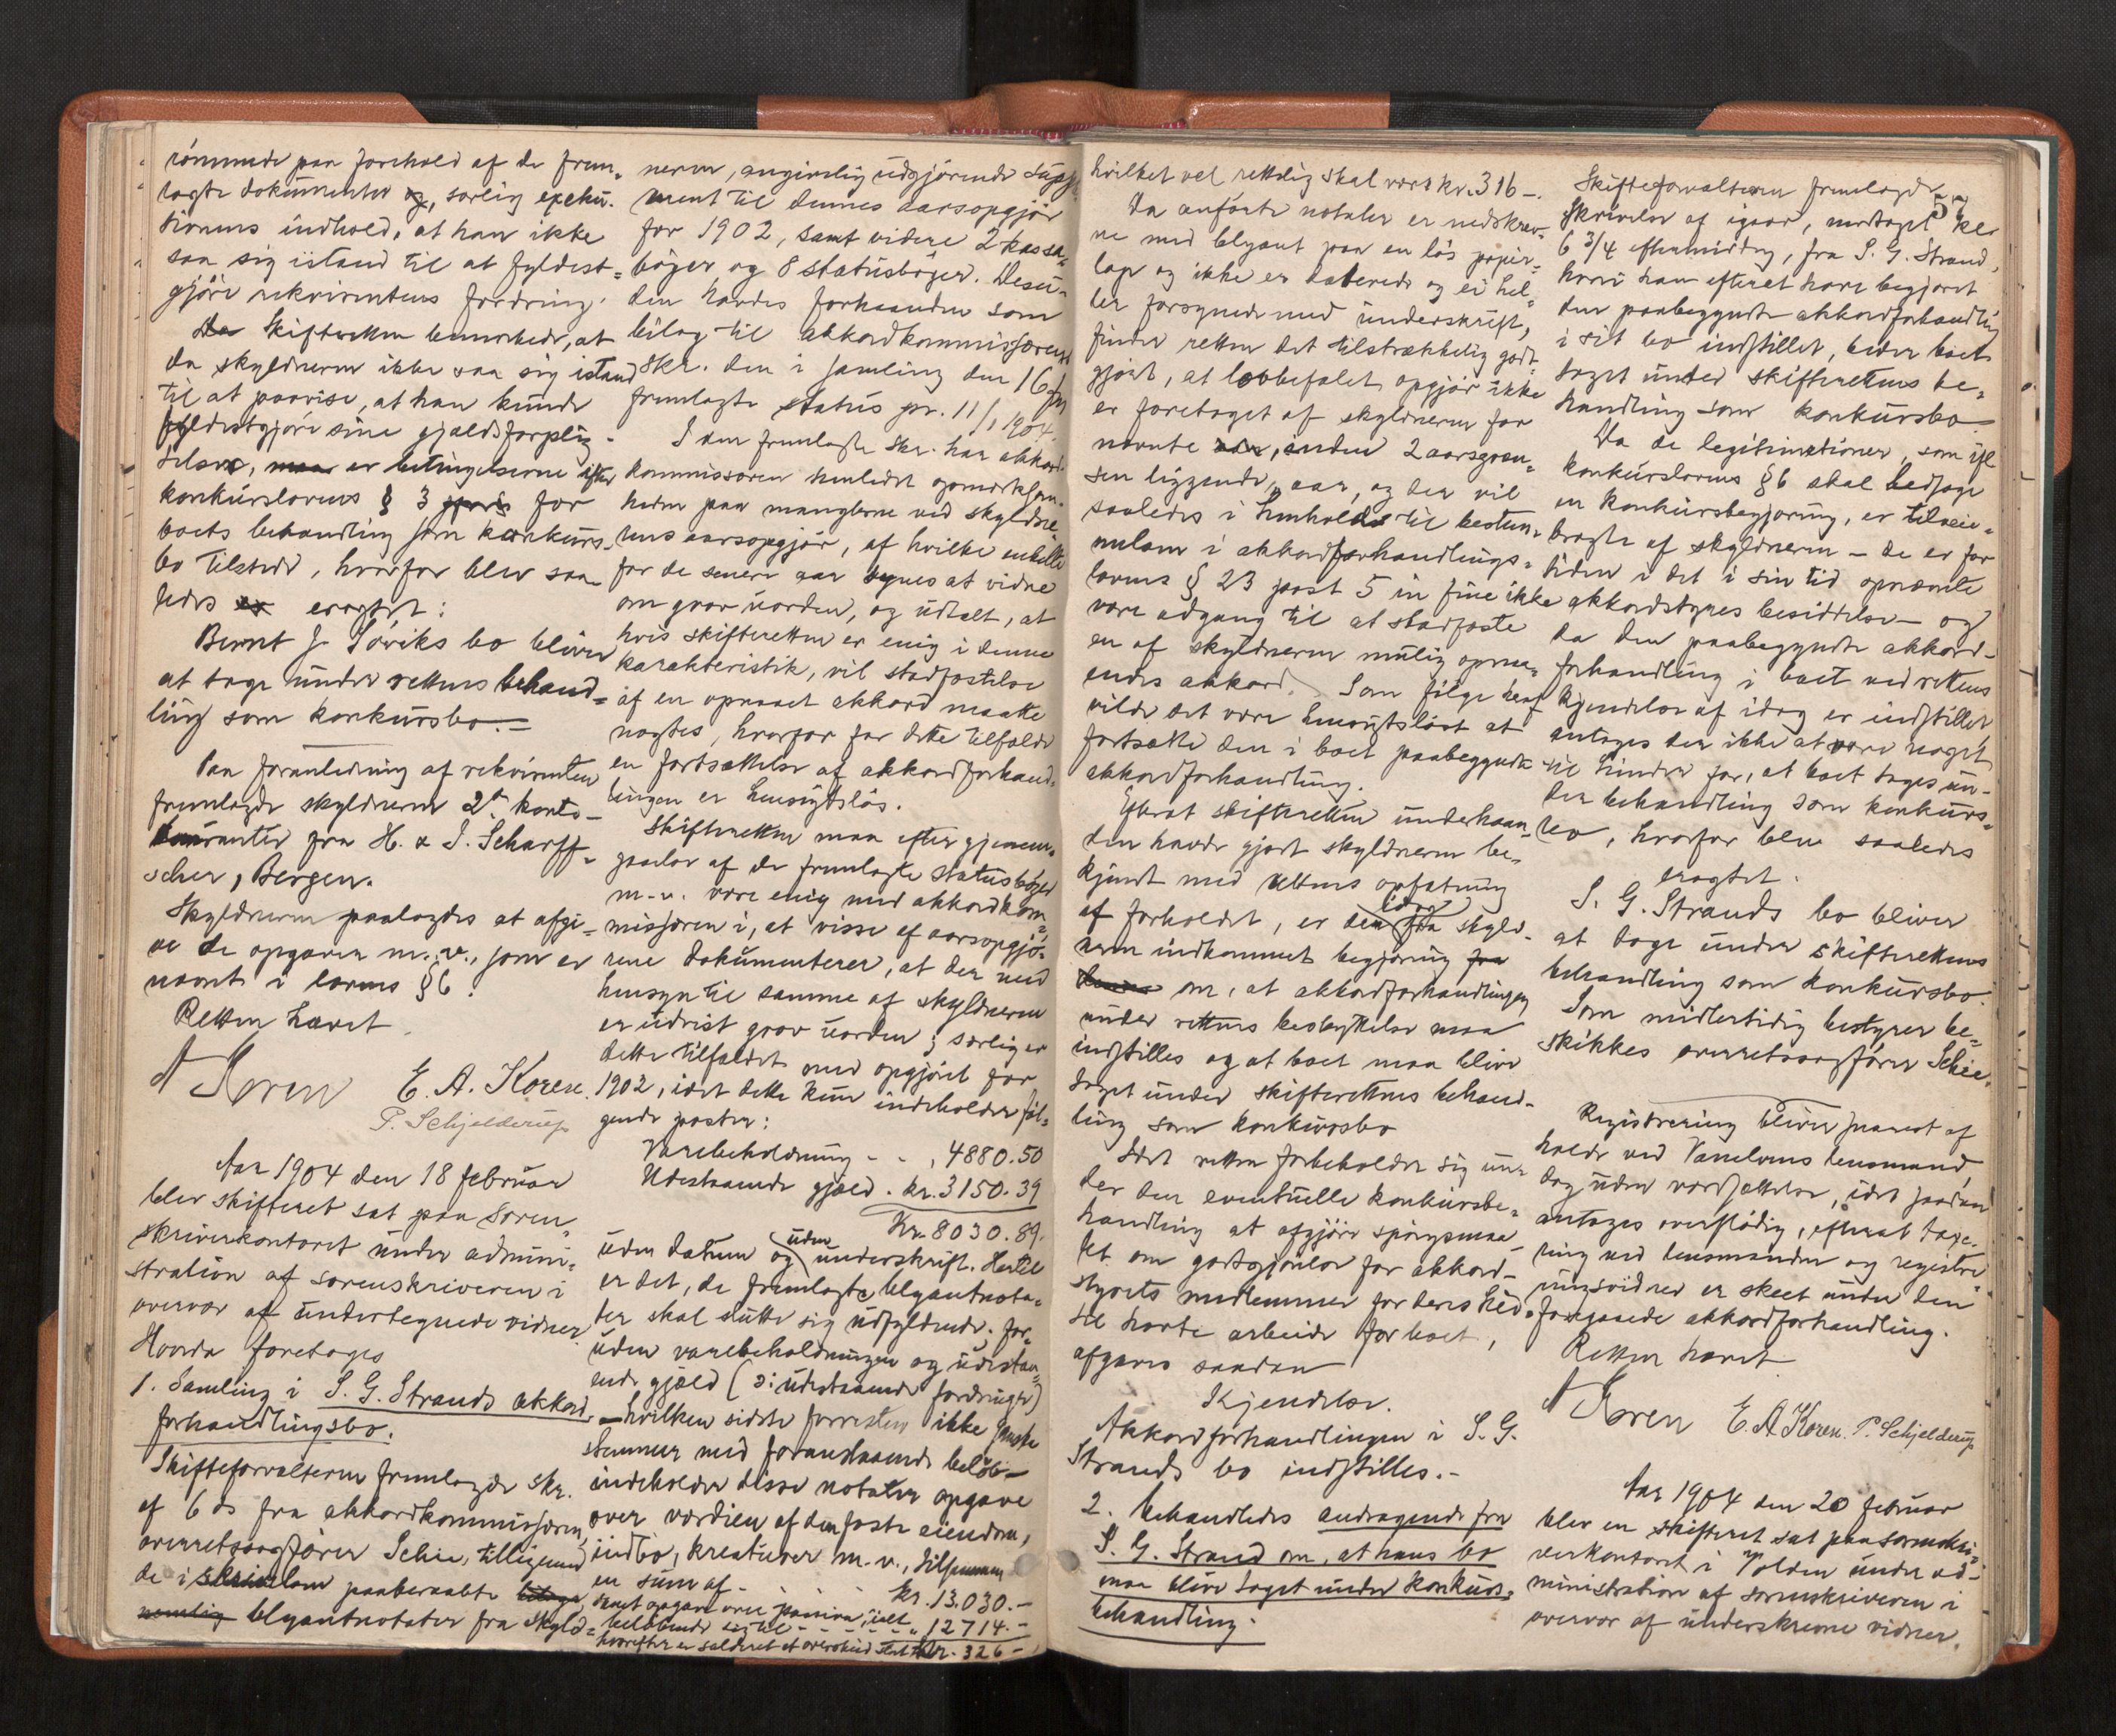 römmede paa forehold af de frem-
lagte dokumenter og, særlig exeku-
tionens indhold, at han ikke
saa sig istand til at fyldest-
gjöre rekvirentens fordring.
Da Skifteretten bemærkede, at
da skyldneren ikke saa sig istand
til at paavise, at han kunde
fyldestgjöre sine gjældsforplig-
telser, maa er betingelserne efter
konkurslovens § 3 for
boets behandling som konkurs-
bo tilstede, hvorfor blev saa-
ledes eragtet:
Bernt J. Söviks bo bliver
at tage under rettens behand-
ling som konkursbo.-
Paa foranledning af rekvirenten
fremlagde skyldneren 2de konto-
kuranter fra H. & I. Scharff-
scher, Bergen.
Skyldneren paalagdes at afgi-
ve de opgaver m.v., som er
nævnt i lovens § 6.
Retten hævet.
A Koren E. A. Koren.
P. Schjelderup
Aar 1904 den 18 februar
blev skifteret sat paa soren-
skriverkontoret under admini-
stration af sorenskriveren i
overvær af undertegnede vidner.
Hvorda foretoges
1. Samling i S. G. Strands akkord-
forhandlingsbo.
Skifteforvalteren fremlagde skr.
af 6 ds fra akkordkommissæren,
overretssagförer Schie, tilligemed
de i skrivelsen paaberaabte bilage,
nemlig blyantnotater fra skyld-
neren, angivelig udgjörende supple-
ment til dennes aarsopgjör
for 1902, samt videre 2 kassa-
böger og 8 statusböger. Desu-
den havdes forhaanden som
bilag til akkordkommissærens
skr. den i samling den 16
fremlagte status pr. 11/1 1904.
I den fremlagte skr. har akkord-
kommissæren henledet opmærksom-
heden paa manglerne ved skyldne-
rens aarsopgjör, af hvilke enkelte
for de senere aar synes at vidne
om grov uorden, og udtalt, at
hvis skifteretten er enig i denne
karakteristik, vil stadfæstelse
af en opnaaet akkord maatte
nægtes, hvorfor for dette tilfælde
en fortsættelse af akkordforhand-
lingen er hensigtslös.
Skifteretten maa efter gjennem-
gaaelse af de fremlagte statusböger
m.v. være enig med akkordkom-
missæren i, at visse af aarsopgjö-
rene dokumenterer, at der med
hensyn til samme af skyldneren
er udvist grov uorden; særlig er
dette tilfældet med opgjöret for
1902, idet dette kun indeholder föl-
gende poster:
Varebeholdning - - , 4880.50
Udestaaende gjæld . kr. 3150.39
Kr. 8030.89.
uden datum og uden underskrift. Hertil
er det, de fremlagte blyantnota-
ter skal slutte sig udfyldende; for-
uden varebeholdningen og udestaa-
ende gjæld (ɔ: udestaaende fordringer)
- hvilken sidste forresten ikke ganske
stemmer med foranstaaende belöb -
indeholder disse notater opgave
over værdien af den faste eiendom,
indbo, kreaturer m.v., tilsammen
en sum af - - - - kr. 13.030.-
samt opgave over passiva, ialt
belöbende sig til - - - - - „ 12714.-
hvorefter er salderet et overskud stort kr. 326-
hvilket vel rettelig skal være kr. 316-.
Da anförte notater er nedskrev-
ne med blyant paa en lös papir-
lap og ikke er daterede og ei hel-
ler forsynede med underskrift,
finder retten det tilstrækkelig godt-
gjort, at lovbefalet opgjör ikke
er foretaget af skyldneren for
nævnte , inden 2 aarsgræn-
sen liggende, aar, og der vil
saaledes i henhold til bestem-
melsen i akkordforhandlings-
lovens § 23 post 5 in fine ikke
være adgang til at stadfæste
en af skyldneren mulig opnaa-
endes akkord. Som fölge heraf
vilde det være hensigtslöst at
fortsætte den i boet paabegyndte
akkordforhandling.
Efterat skifteretten underhaan-
den havde gjort skyldneren be-
kjendt med rettens opfatning
af forholdet, er der idag fra skyld-
neren indkommet begjæring fra
om, at akkordforhandlingen
under rettens beskyttelse maa
indstilles og at boet maa blive
taget under skifterettens behand-
ling som konkursbo
Idet retten forbeholder sig un-
der den eventuelle konkursbe-
handling at afgjöre spörgsmaa-
let om godtgjörelse for akkord-
styrets medlemmer for deres hid-
til havte arbeide for boet,
afgaves saadan
Kjendelse.
Akkordforhandlingen i S. G.
Strands bo indstilles.-
2. behandledes andragende fra
S. G. Strand om, at hans bo
maa blive taget under konkurs-
behandling.
57
Skifteforvalteren fremlagde
skrivelse af igaar, modtaget kl
6 3/4 eftermiddag, fra S. G. Strand,
hvori han efteret have begjæret
den paabegyndte akkordforhandling
i sit bo indstillet, beder boet
taget under skifterettens be-
handling som konkursbo.
Da de legitimationer, som ifl
konkurslovens § 6 skal ledsage
en konkursbegjæring, er tilveie-
bragte af skyldneren - de er for
tiden i det i sin tid opnævnte
akkordstyres besiddelse - og
da den paabegyndte akkord-
forhandling i boet ved rettens
kjendelse af idag er indstillet
antages der ikke at være noget
til hinder for, at boet tages un-
der behandling som konkurs-
bo, hvorfor blev saaledes
eragtet.
S. G. Strands bo bliver
at tage under skifterettens
behandling som konkursbo.
Som midlertidig bestyrer be-
skikkes overretssagförer Schie.
Registrering bliver snarest af-
holde ved Vanelvens lensmand,
dog uden værdsættelse, idet saadan
antages overflödig, efterat taxe-
ring ved lensmanden og registre-
ringsvidner er skeet under den
foregaaede akkordforhandling.
Retten hævet
A Koren E. A Koren. P. Schjelderup
Aar 1904 den 20 februar
blev en skifteret sat paa sorenskri-
verkontoret i Volden under ad-
ministration af sorenskriveren i
overvær af underskrevne vidner.